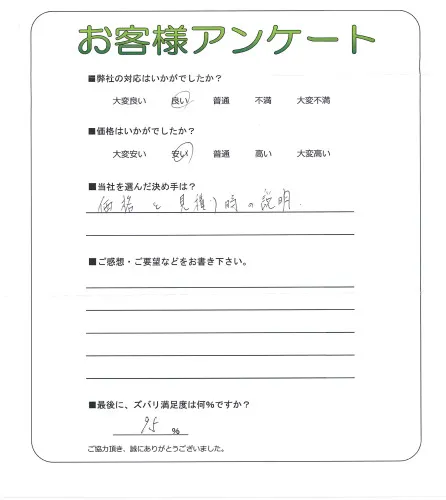 お客様アンケート
■弊社の対応はいかがでしたか？
大変良い 良い 普通 不満 大変不満
■価格はいかがでしたか？
大変安い 安い 普通 高い 大変高い
■当社を選んだ決め手は？
価格と見積り時の説明.
■ご感想・ご要望などをお書き下さい。
■最後に、ズバリ満足度は何%ですか？
95 %
ご協力頂き、誠にありがとうございました。